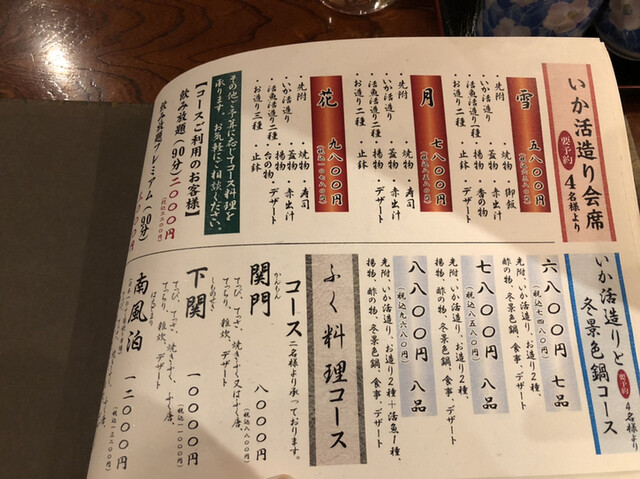 いか活造り会席
要予約
4名様より
雪 五八〇〇円
・先附
・いか活造り
・お造り二種
・焼物
・蓋物
・揚物
・御飯
・赤出汁
・香の物
・止鉢
月 七八〇〇円
・先附
・いか活造り
・活魚活造り二種
・お造り二種
・焼物
・蓋物
・揚物
・寿司
・赤出汁
・デザート
・止鉢
花 九八〇〇円
(税込一〇七八〇円)
・先附
・いか活造り
・活魚活造り二種
・お造り三種
・焼物
・蓋物
・揚物
・台の物
・止鉢
・寿司
・赤出汁
・デザート
その他ご予算に応じてコース料理を
承ります。お気軽にご相談ください。
【コースご利用のお客様】
飲み放題(90分)二〇〇〇円
飲み放題プレミアム(90分)
いか活造りと
冬景色鍋コース
要予約
4名様より
六八〇〇円 七品
(税込七四八〇円)
先附、いか活造り、お造り2種、
酢の物、冬景色鍋、食事、デザート
七八〇〇円 八品
(税込八五八〇円)
先附、いか活造り、お造り2種、
揚物、酢の物、冬景色鍋、食事、デザート
八八〇〇円 八品
(税込九六八〇円)
先附、いか活造り、お造り2種+活魚1種、
揚物、酢の物、冬景色鍋、食事、デザート
ふく料理コース
コース 二名様より承っております。
関門 八〇〇〇円
かんもん
(税込八八〇〇円)
てっぴ、てっさ、焼きふく又はふく唐、
てっちり、雑炊、デザート
下関 一〇〇〇〇円
しものせき
(税込一一〇〇〇円)
てっぴ、てっさ、焼きふく、ふく唐、
てっちり、雑炊、デザート
南風泊 一二〇〇〇円
はえどまり
(税込一三二〇〇円)